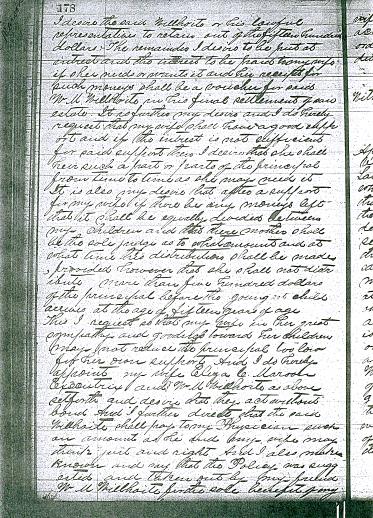 178
I desire the said Willhoite or his lawful
representatives to retain out of the fifteen hundred
dollars. The remainder I desire to be put at
interest and the interest to be paid to my wife
if she needs or wants it and her receipt for
such moneys shall be a voucher for said
W. M. Willhoite in his final settlement of my
estate It is further my desire and I do hereby
request that my wife shall have a good supp
ort and if the interest is not sufficient
for said support then I desire that she shall
have such a part or parts of the principal
from time to time as she may need it
It is also my desire that after a support
for my wife if there be any moneys left
that it shall be equally devided between
my children and that there mother shall
be the sole judge as to what amount and at
what time this distribution shall be made
provided however that she shall not distr
ibute more than four hundred dollars
of the principal before the youngest child
arrives at the age of fifteen years of age
this I request so that my wife in her great
sympathy and good will toward her children
may not reduce the principal too low
for her own support. And I do hereby
appoint my wife Eliza C.
Executrix and W. M. Willhoite as above
set forth and desire that they act without
bond And I further direct that the said
Willhoite shall pay to my Physician such
an amount as he and my wife may
think just and right And I also make
known and say that the Policy was sugg
ested and taken out by my friend
W. M Willhoite for the sole benefit of my